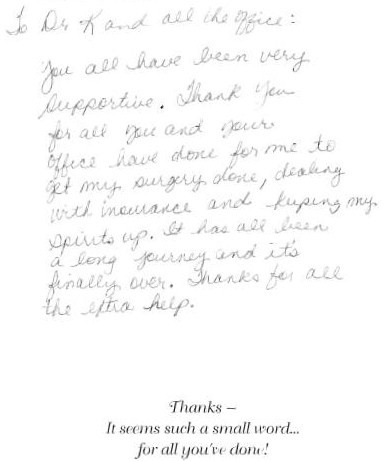 To Dr K and all the office:
You all have been very
supportive. Thank you
for all you and your
office have done for me to
get my surgery done, dealing
with insurance and keeping my
spirits up. It has all been
a long journey and it's
finally over. Thanks for all
the extra help.
Thanks –
It seems such a small word...
for all you've done!